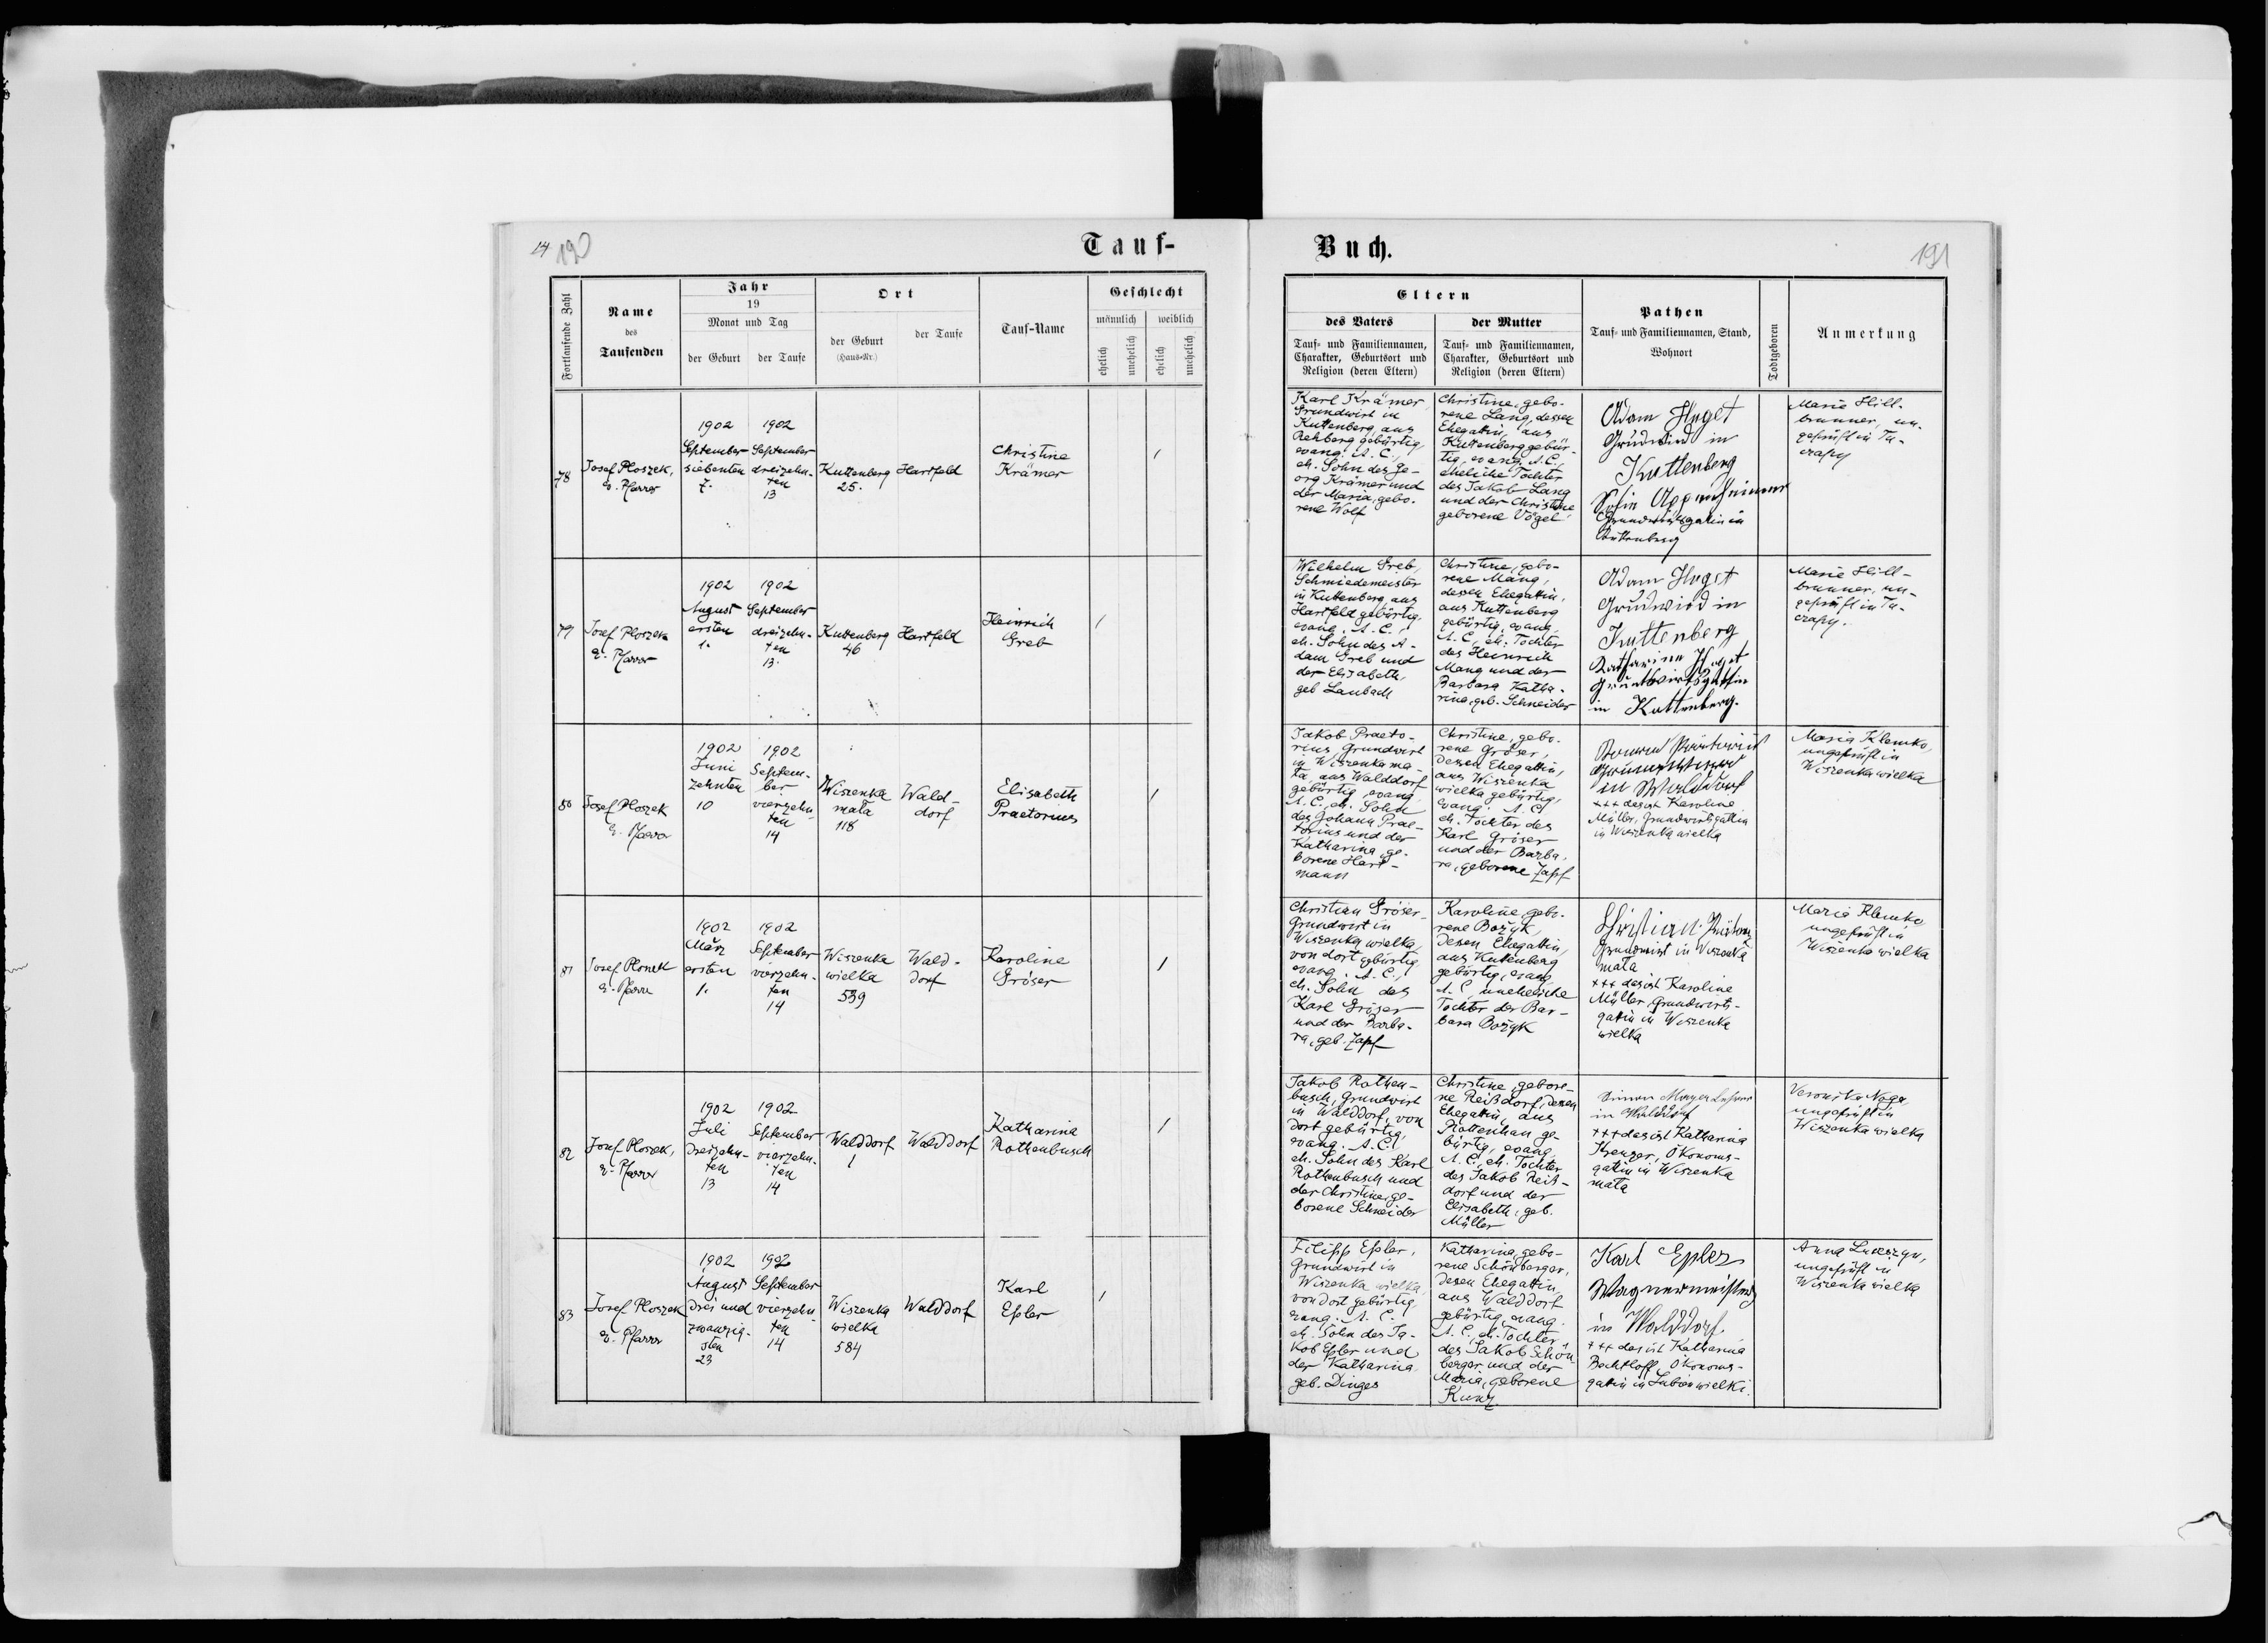 14 190
Tauf-
Buch.
191
Fortlaufende Zahl
Name
des
Taufenden
Jahr
19
Monat und Tag
der Geburt
der Taufe
Ort
der Geburt
(Haus-Nr.)
der Taufe
Tauf-Name
Geschlecht
männlich
weiblich
ehelich
unehelich
ehelich
unehelich
Eltern
des Vaters
Tauf- und Familiennamen,
Charakter, Geburtsort und
Religion (deren Eltern)
der Mutter
Tauf- und Familiennamen,
Charakter, Geburtsort und
Religion (deren Eltern)
Pathen
Tauf- und Familiennamen, Stand,
Wohnort
Todtgeboren
Anmerkung
78
Josef Ploszek,
ev. Pfarrer
1902
September
siebenten
7.
1902
September
dreizehn-
ten
13
Kuttenberg
25.
Hartfeld
Christine
Krämer
1
Karl Krämer,
Grundwirt in
Kuttenberg, aus
Rehberg gebürtig,
evang. A. C.,
eh. Sohn des Ge-
org Krämer und
der Maria, gebo-
rene Wolf
Christine, gebo-
rene Lang, dessen
Ehegattin, aus
Kuttenberg gebür-
tig, evang. A. C.,
eheliche Tochter
des Jakob Lang
und der Christine
geborene Vögel
Adam Huget
Grudwird in
Kuttenberg
Sofia Appenheimer
Grundwirtsgatin in
Kuttenberg
Marie Hill-
brunner, un-
geprüft in Tu-
czapy
79
Josef Ploszek
ev. Pfarrer
1902
August
ersten
1.
1902
September
dreizehn-
ten
13.
Kuttenberg
46
Hartfeld
Heinrich
Greb
1
Wilhelm Greb,
Schmiedemeister
in Kuttenberg, aus
Hartfeld gebürtig,
evang. A. C.,
eh. Sohn des A-
dam Greb und
der Elisabeth,
geb Laubach
Christine, gebo-
rene Mang,
dessen Ehegattin,
aus Kuttenberg
gebürtig, evang.
A. C., eh. Tochter
des Heinrich
Mang und der
Barbara Katha-
rina, geb. Schneider
Adam Huget
Grudwird in
Kuttenberg
Katharina Huget
Grundwirtsgattin
in Kuttenberg.
Marie Hill-
brunner, un-
geprüft in Tu-
czapy.
80
Josef Ploszek
ev. Pfarrer
1902
Juni
zehnten
10
1902
Septem-
ber
vierzehn-
ten
14
Wiszenka
mała
118
Wald-
dorf
Elisabeth
Praetorius
1
Jakob Praeto-
rius, Grundwirt
in Wiszenka ma-
ła, aus Walddorf
gebürtig, evang.
A. C., eh. Sohn
des Johann Prae-
torius und der
Katharina, ge-
borene Hart-
mann
Christine, gebo-
rene Gröser,
dessen Ehegattin,
aus Wiszenka
wielka gebürtig,
evang. A. C.,
eh. Tochter des
Karl Gröser
und der Barba-
ra, geborene Zapf
in Walddorf
+++ das ist Karoline
Müller, Grundwirtsgattin
in Wiszenka wielka
Maria Klemko,
ungeprüft in
Wiszenka wielka
81
Josef Ploszek
ev. Pfarrer
1902
März
ersten
1.
1902
September
vierzehn-
ten
14
Wiszenka
wielka
539
Wald-
dorf
Karoline
Gröser
1
Christian Gröser,
Grundwirt in
Wiszenka wielka,
von dort gebürtig,
evang. A. C.,
eh. Sohn des
Karl Gröser
und der Barba-
ra, geb. Zapf
Karoline, gebo-
rene Bożyk,
dessen Ehegattin,
aus Kuttenberg
gebürtig, evang.
A. C., uneheliche
Tochter der Bar-
bara Bożyk
Christian
Grundwirt in Wiszenka
mała
+++ das ist Karoline
Müller, Grundwirts-
gattin in Wiszenka
wielka
Maria Klemko
ungeprüft in
Wiszenka wielka
82
Josef Ploszek,
ev. Pfarrer
1902
Juli
dreizehn-
ten
13
1902
September
vierzehn-
ten
14
Walddorf
1
Walddorf
Katharina
Rothenbusch
1
Jakob Rothen-
busch, Grundwirt
in Walddorf, von
dort gebürtig,
evang. A. C.,
eh. Sohn des Karl
Rothenbusch und
der Christine, ge-
borene Schneider
Christine, gebore-
ne Reißdorf, dessen
Ehegattin, aus
Rottenhan ge-
bürtig, evang.
A. C., eh. Tochter
des Jakob Reiß-
dorf und der
Elisabeth, geb.
Müller
Simon Mayer Lehrer
in Walddorf
+++ das ist Katharina
Kreuzer, Ökonoms-
gattin in Wiszenka
mała
Veronika Noga
ungeprüft in
Wiszenka wielka
83
Josef Ploszek
ev. Pfarrer
1902
August
drei und
zwanzig-
sten
23
1902
September
vierzehn-
ten
14
Wiszenka
wielka
584
Walddorf
Karl
Epler
1
Filipp Epler,
Grundwirt in
Wiszenka wielka,
von dort gebürtig,
evang. A. C.
eh. Sohn des Ja-
kob Epler und
der Katharina
geb. Dinges
Katharina, gebo-
rene Schönberger,
dessen Ehegattin,
aus Walddorf
gebürtig, evang.
A. C., eh. Tochter
des Jakob Schön-
berger und der
Maria, geborene
Kunz.
Karl Epler
Wagnermeister
in Walddorf
+++ das ist Katharina
Bechtloff, Ökonoms-
gattin in Lubien wielki.
Anna
ungeprüft in
Wiszenka wielka